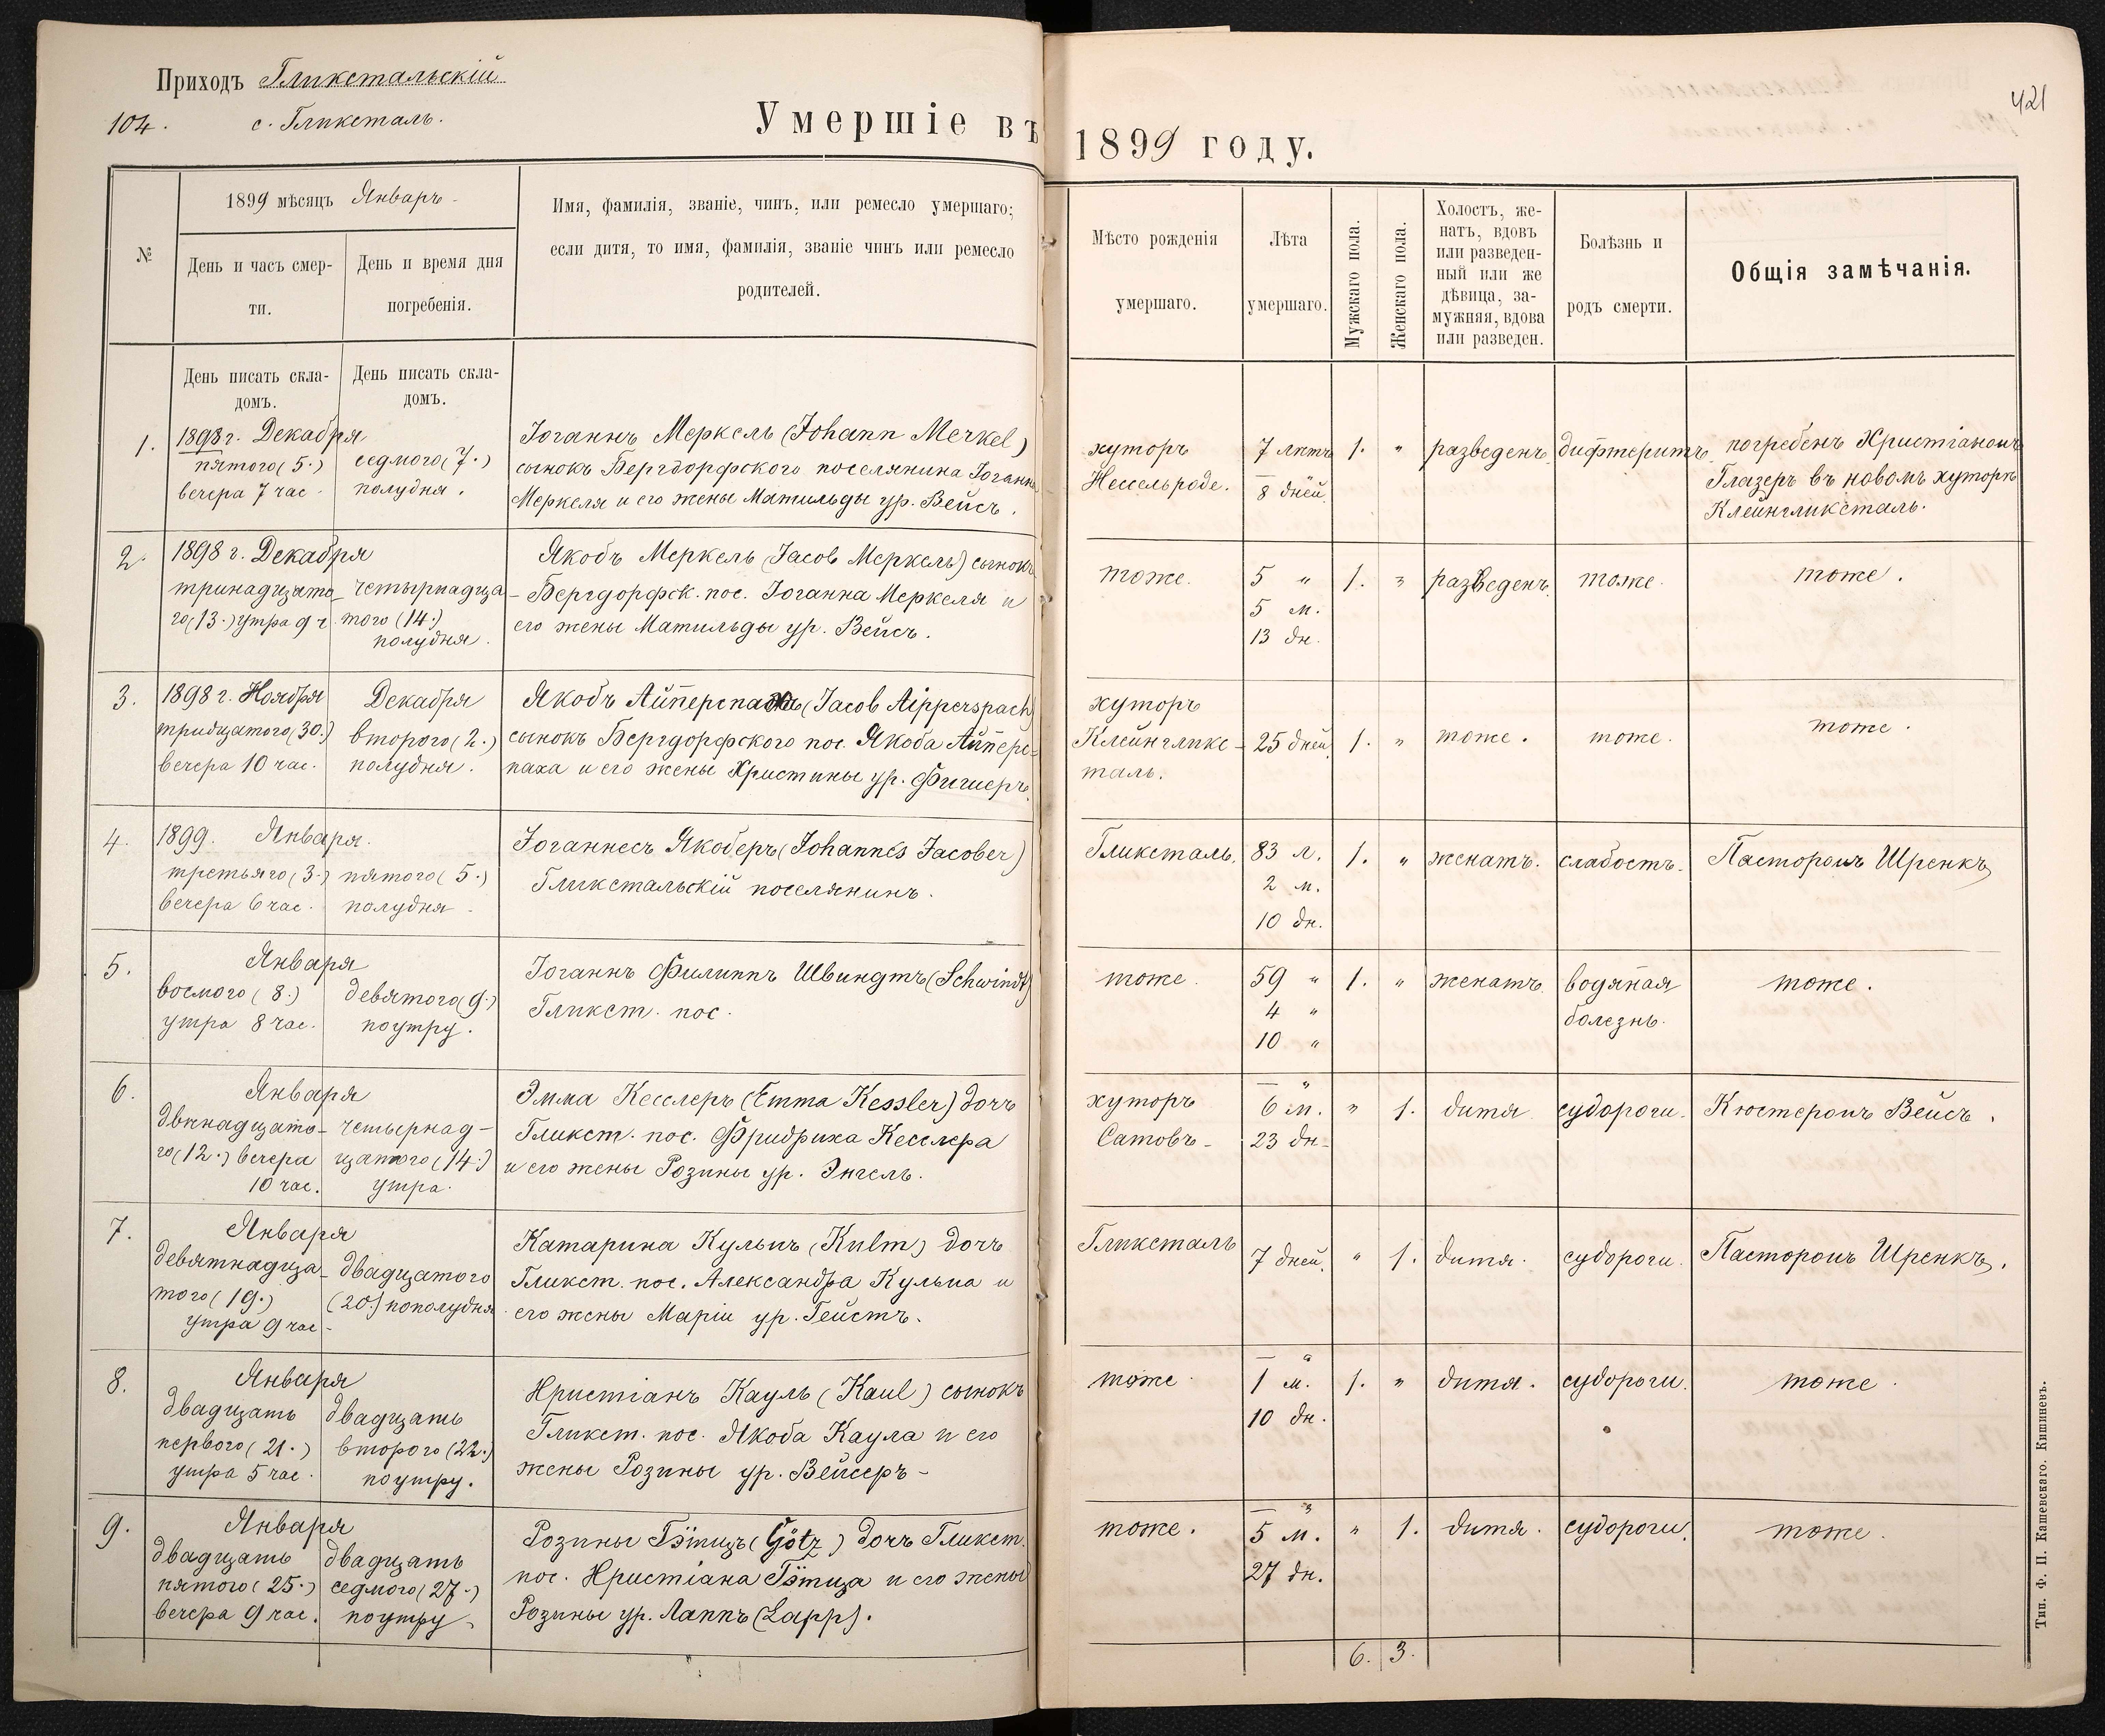 Приходъ Гликстальскій
104. с. Гликсталь.
Умершіе въ 1899 году.
421
№
1899 мѣсяцъ Январь
День и часъ смерти.
День и время дня погребенія.
Имя, фамилія, званіе, чинъ, или ремесло умершаго;
если дитя, то имя, фамилія, званіе чинъ или ремесло
родителей.
Мѣсто рожденія
умершаго.
Лѣта
умершаго.
Мужскаго пола.
Женскаго пола.
Холостъ, же-
натъ, вдовъ
или разведен-
ный или же
дѣвица, за-
мужняя, вдова
или разведен.
Болѣзнь и
родъ смерти.
Общія замѣчанія.
День писать скла-
домъ.
День писать скла-
домъ.
1.
1898 г. Декабря
пятого (5.)
вечера 7 час.
седмого (7.)
полудня.
Іоганнъ Меркель (Johann Merkel)
сынокъ Бергдорфского поселянина Іоганна
Меркеля и его жены Матильды ур. Вейсъ.
хуторъ
Нессельроде.
7 лѣтъ
8 дней
1. "
разведенъ
дифтеритъ
погребенъ Христіаномъ
Глазеръ въ новомъ хуторѣ
Клейнгликсталь.
2.
1898 г. Декабря
тринадцато-
го (13.) утра 9 ч.
четырнадца-
того (14.)
полудня.
Якобъ Меркель (Jacob Меркель) сынокъ
Бергдорфск. пос. Іоганна Меркеля и
его жены Матильды ур. Вейсъ.
тоже.
5 "
5 м.
13 дн.
1. "
разведенъ.
тоже.
тоже.
3.
1898 г. Ноября
тридцатого (30.)
вечера 10 час.
Декабря
второго (2.)
полудня.
Якобъ (Jacob Aipperspach)
сынокъ Бергдорфского пос. Якоба Айперс-
паха и его жены Христины ур. Фишеръ.
хуторъ
Клейнгликс-
таль.
25 дней
1. "
тоже.
тоже.
тоже.
4.
1899. Января.
третьяго (3.)
вечера 6 час.
пятого (5.)
полудня.
Іоганнесъ Якоберъ (Johannes Jacober)
Гликстальскій поселянинъ.
Гликсталь.
83 л.
2 м.
10 дн.
1. "
женатъ.
слабость.
Пасторомъ Шренкъ
5.
Января
восмого (8.)
утра 8 час.
девятого (9.)
поутру.
Іоганнъ Филиппъ Швиндтъ (Schwindt)
Гликст. пос.
тоже.
59 "
4 "
10 "
1. "
женатъ.
водяная
болезнь.
тоже.
6.
Января
двѣнадцато-
го (12.) вечера
10 час.
четырнад-
цатого (14.)
утра.
Эмма Кесслеръ (Emma Kessler) дочь
Гликст. пос. Фридриха Кесслера
и его жены Розины ур. Энгель.
хуторъ
Сатовъ
— "
6 м.
23 дн.
" 1.
дитя
судороги.
Кюстеромъ Вейсъ.
7.
Января
девятнадца-
того (19.)
утра 9 час.
двадцатого
(20.) пополудня
Катарина Кульмъ (Kulm) дочь
Гликст. пос. Александра Кульма и
его жены Маріи ур. Гейстъ.
Гликсталь
7 дней.
" 1.
дитя.
судороги.
Пасторомъ Шренкъ.
8.
Января
двадцать
первого (21.)
утра 5 час.
двадцать
второго (22.)
поутру.
Христіанъ Кауль (Kaul) сынокъ
Гликст. пос. Якоба Каула и его
жены Розины ур. Вейсеръ
тоже.
— "
1 м.
10 дн.
1. "
дитя.
судороги.
тоже.
9.
Января
двадцать
пятого (25.)
вечера 9 час.
двадцать
седмого (27.)
поутру
Розины Гётцъ (Götz) дочь Гликст.
пос. Христіана Гётца и его жены
Розины ур. Лаппъ (Lapp).
тоже.
— "
5 м.
27 дн.
" 1.
дитя.
судороги.
тоже.
6. 3.
Тип. Ф. П. Кашевскаго. Кишиневъ.